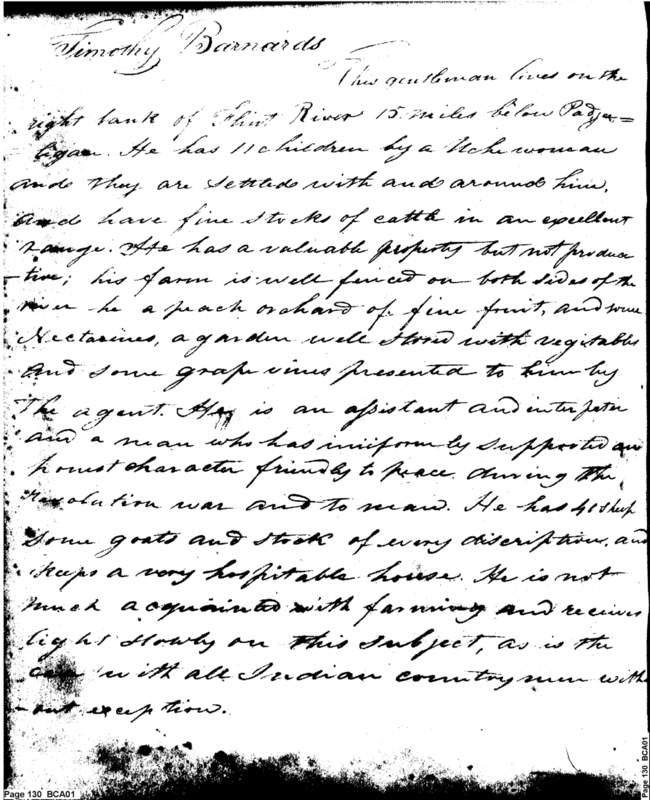 Timothy Barnards
This gentleman lives on the
right bank of Flint River 15 miles below Padjee=
ligau. He has 11 children by a Uche woman
and they are settled with and around him,
and have fine stocks of cattle in an excellent
range. He has a valuable property but not produc
-tive; his farm is well fenced on both sides of the
river he a peach orchard of fine fruit, and some
Nectarines, a garden well stored with vegitables
and some grape vines presented to him by
the agent. He is an assistant and interpeter
and a man who has uniformly supported an
honest character friendly to peace during the
revolution war and to man. He has 40 sheep
some goats and stock of every discription, and
keeps a very hospitable house. He is not
much acquainted with farming and receives
light slowly on this subject, as is the
case with all Indian countrymen with
-out exception.
Page 130 BCA01
Page 130 BCA01